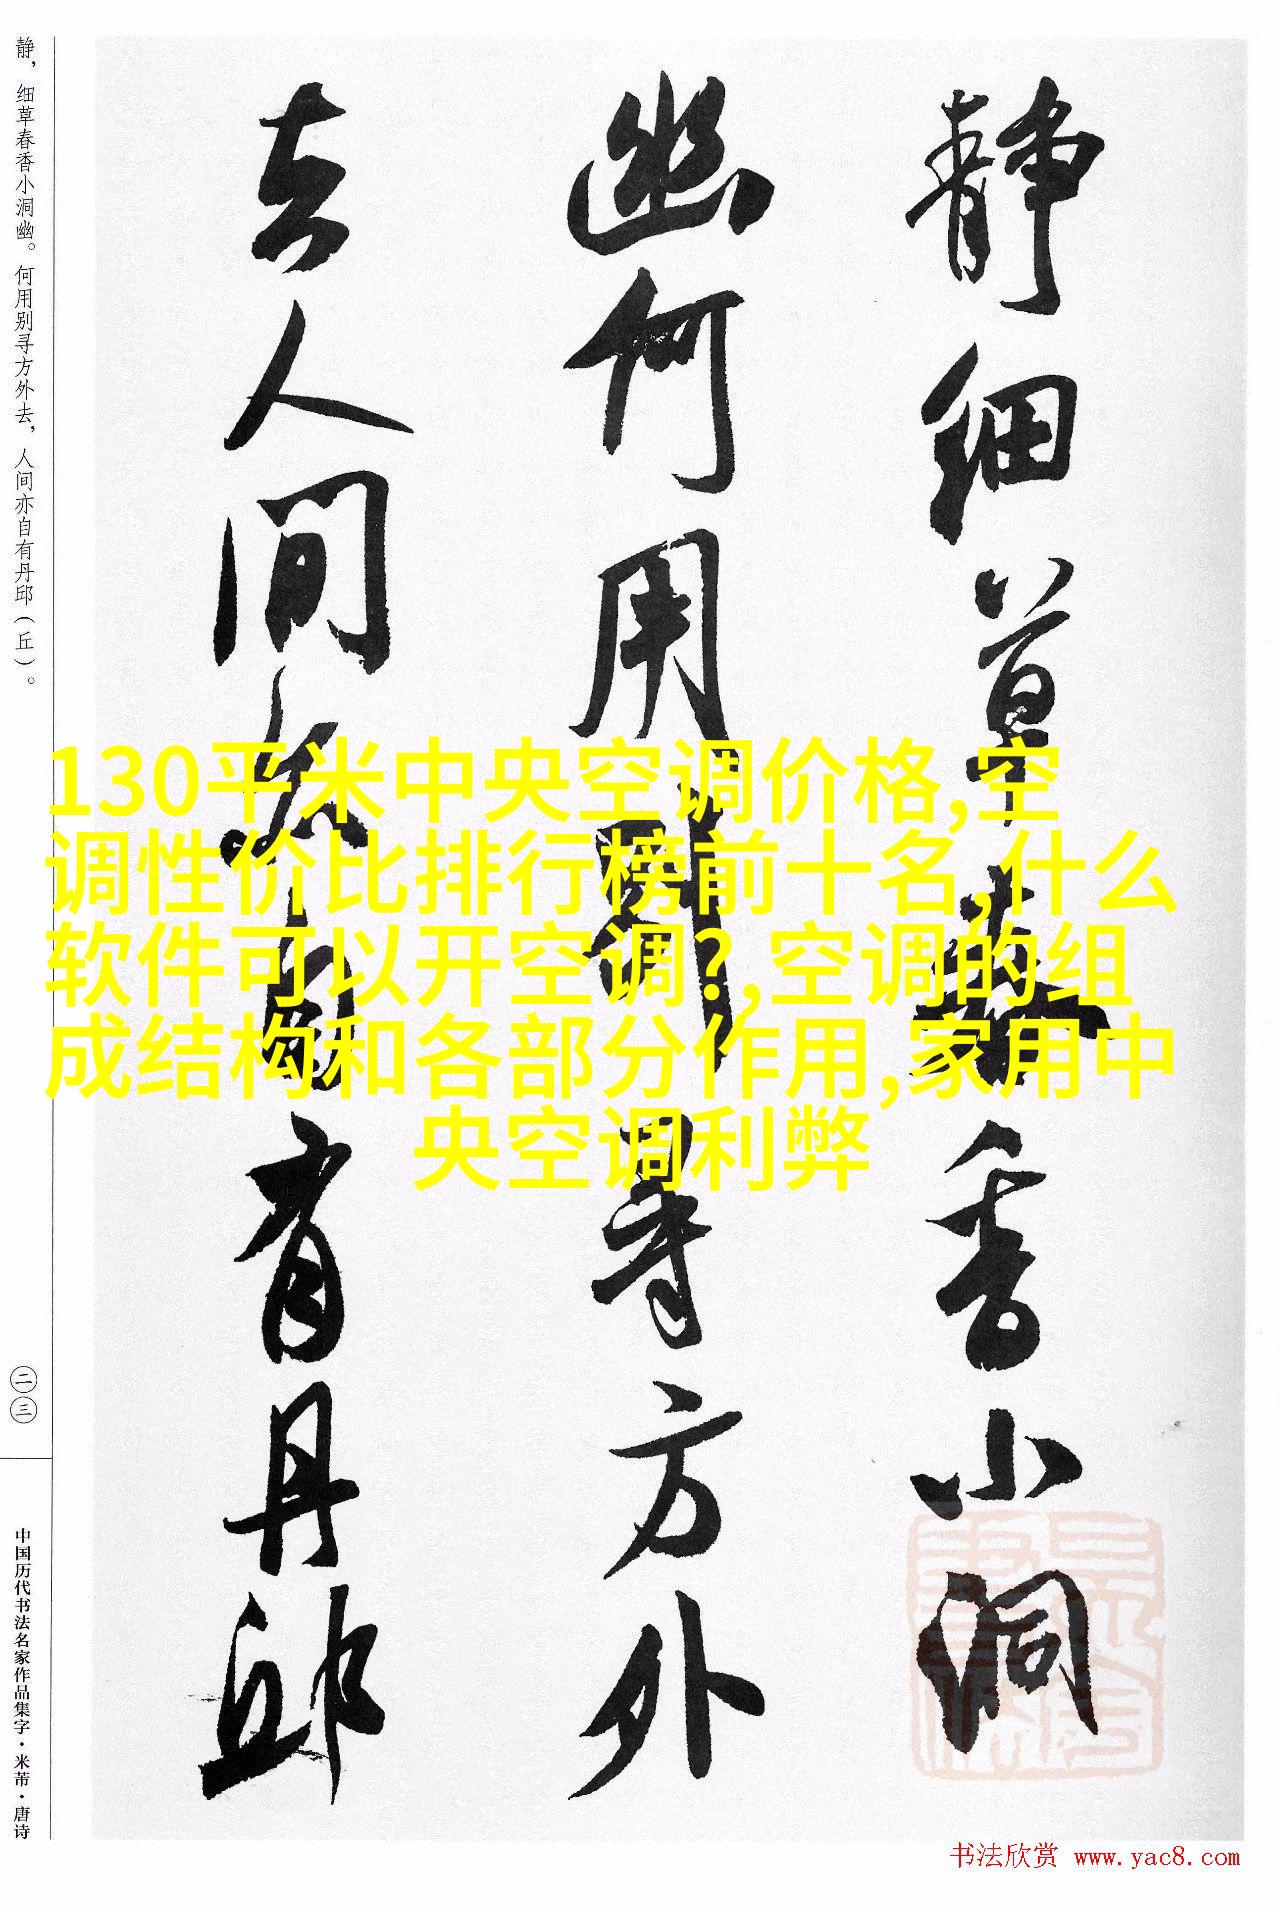 静，细草春香小洞幽。何用别寻方外去，人间亦自有丹邱（丘）。
静细草春香小洞
幽何用别寻方外
去人间亦自有丹邱
130平米中央空调价格,空
调性价比排行榜前十名,什么
软件可以开空调?,空调的组
成结构和各部分作用,家用中
央空调利弊
二三
中国历代书法名家作品集字·米芾·唐诗
书法欣赏 www.yac8.com